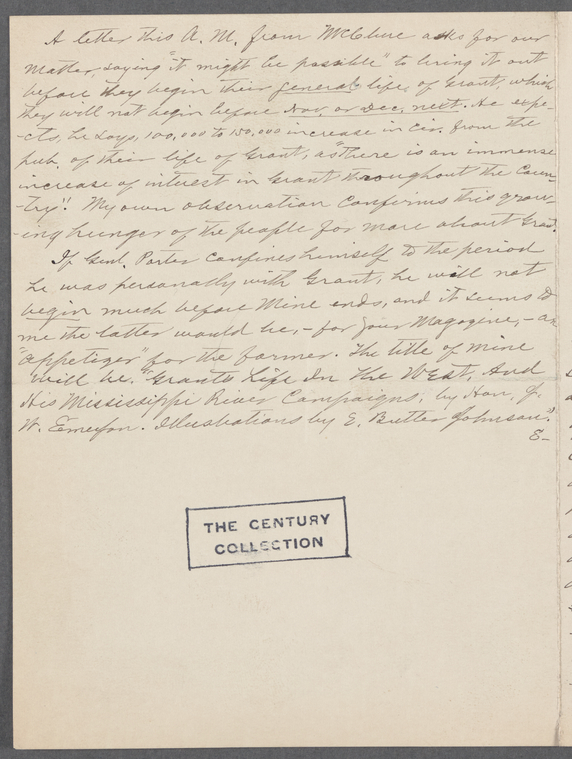 A letter this A.M. from McClure asks for our
matter, saying "it might be possible" to bring it out
before they begin their general life of Grant, which
they will not begin before Nov. or Dec. next. He expe-
-cts, he says, 100,000 to 150,000 increase in cir. from the
pub. of their life of Grant, as "there is an immense
increase of interest in Grant throughout the Coun-
-try". My own observation confirms this grow-
-ing hunger of the people for more about Grant.
If Genl. Porter confines himself to the period
he was personally with Grant, he will not
begin much before mine ends, and it seems to
me the latter would be, - for your Magazine, - an
"appetizer" for the former. The title of mine
will be: "Grant's Life In The West, And
His Mississippi River Campaigns, by Hon. J.
W. Emerson. Illustrations by E. Butler Johnson."
E-
THE CENTURY
COLLECTION